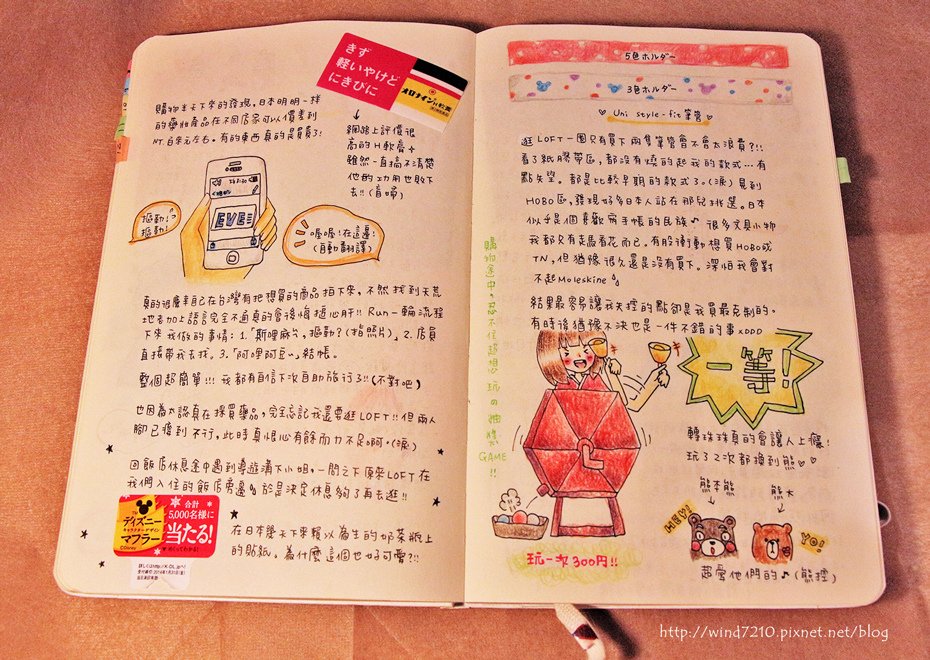 購物半天下來的發現,日本明明一樣
的藥妝產品在不同店家可以價差到
NT.百來元左右。有的東西真的是買貴了!
きず
軽いやけど
にきびに
オロナインH軟膏
↓
網路上評價很
高的H軟膏。
雖然一直搞不清楚
他的功用也敗下
去!!(盲瞎)
摳動!?
摳動!
EVE
喔喔!在這邊!
(自動翻譯)
真的很慶幸自己在台灣有把想買的商品拍下來,不然找到天荒
地老加上語言完全不通真的會後悔搥心肝!! Run一輪流程
下來我做的事情:1.「斯哩麻片,摳動?(指照片)」2.店員
直接帶我去找。3.「阿哩阿豆」結帳。
整個超簡單!!! 我都有自信下次自助旅行了!!(不對吧)
也因為太認真在採買藥品,完全忘記我還要逛LOFT!!但兩人
腳已痠到不行,此時真恨心有餘而力不足啊。(淚)
回飯店休息途中遇到導遊溝下小姐,一問之下原來LOFT在
我們入住的飯店旁邊。於是決定休息夠了再去逛!!
ディズニー
キャラクターデザイン
マフラー
©Disney
合計
5,000名様に
当たる!
めくってわかる!
在日本幾天下來賴以為生的奶茶瓶上
的貼紙。為什麼這個也好可愛?!!
購物途中。忍不住超想玩の抽獎GAME!!
5色ホルダー
3色ホルダー
Uni style-fit筆管
逛LOFT一圈只有買下兩隻筆管會不會太浪費?!!
看了紙膠帶區,都沒有燒的起我的款式…有
點失望。都是比較早期的款式了。(淚)見到
HOBO區,發現好多日本人站在那兒挑選。日本
似乎是個喜歡寫手帳的民族♪ 很多文具小物
我都只有走馬看花而已,有股衝動想買HOBO或
TN,但猶豫很久還是沒有買下。深怕我會對
不起Moleskine
結果最容易讓我失控的點卻是我買最克制的。
有時後猶豫不決也是一件不錯的事XDDD
一等!
轉珠珠真的會讓人上癮!
玩了2次都換到熊♡♡
熊本熊
↓
熊大
↓
HEY!
YO!
玩一次300円!!
超愛他們的♪(熊控)
http://wind7210.pixnet.net/blog